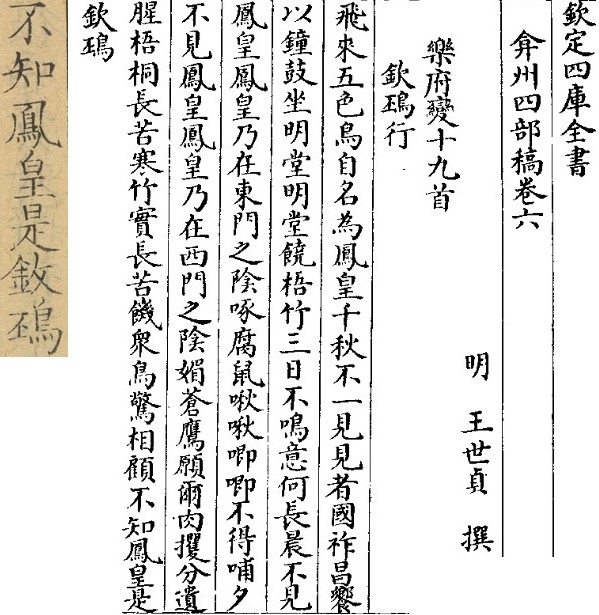 欽定四庫全書
弇州四部稿卷六
明 王世貞 撰
樂府變十九首
欽䲹行
飛來五色鳥自名為鳳皇千秋不一見見者國祚昌饗
以鐘鼓坐明堂明堂饒梧竹三日不鳴意何長晨不見
鳳皇鳳皇乃在東門之陰啄腐鼠啾啾唧唧不得哺夕
不見鳳皇鳳皇乃在西門之陰媚蒼鷹願爾肉攫分遺
腥梧桐長苦寒竹實長苦饑衆鳥驚相顧不知鳳皇是
欽䲹
不知鳳皇是欽䲹